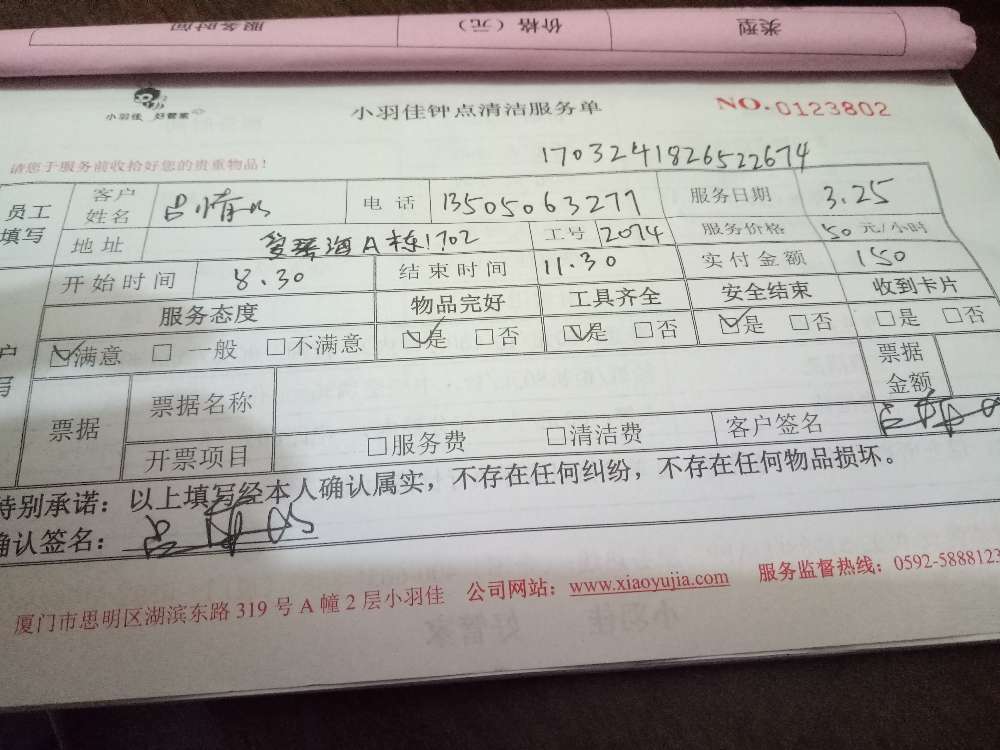 类型 价格（元） 服务时间
小羽佳 好管家
小羽佳钟点清洁服务单
NO.0123802
请您于服务前收拾好您的贵重物品！
1703241826522674
员工填写 客户姓名 吕 电话 13505063277 服务日期 3.25
地址 海A栋1702 工号 2074 服务价格 50元/小时
开始时间 8.30 结束时间 11.30 实付金额 150
服务态度 物品完好 工具齐全 安全结束 收到卡片
☑满意 □一般 □不满意 ☑是 □否 ☑是 □否 ☑是 □否 □是 □否
票据 票据名称 票据金额
开票项目 □服务费 □清洁费 客户签名
特别承诺：以上填写经本人确认属实，不存在任何纠纷，不存在任何物品损坏。
确认签名：
厦门市思明区湖滨东路319号A幢2层小羽佳 公司网站：www.xiaoyujia.com 服务监督热线：0592-5888123